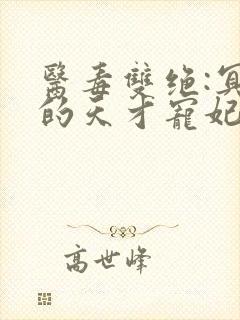 醫毒雙绝:冥
的天才寵妃
高世峰